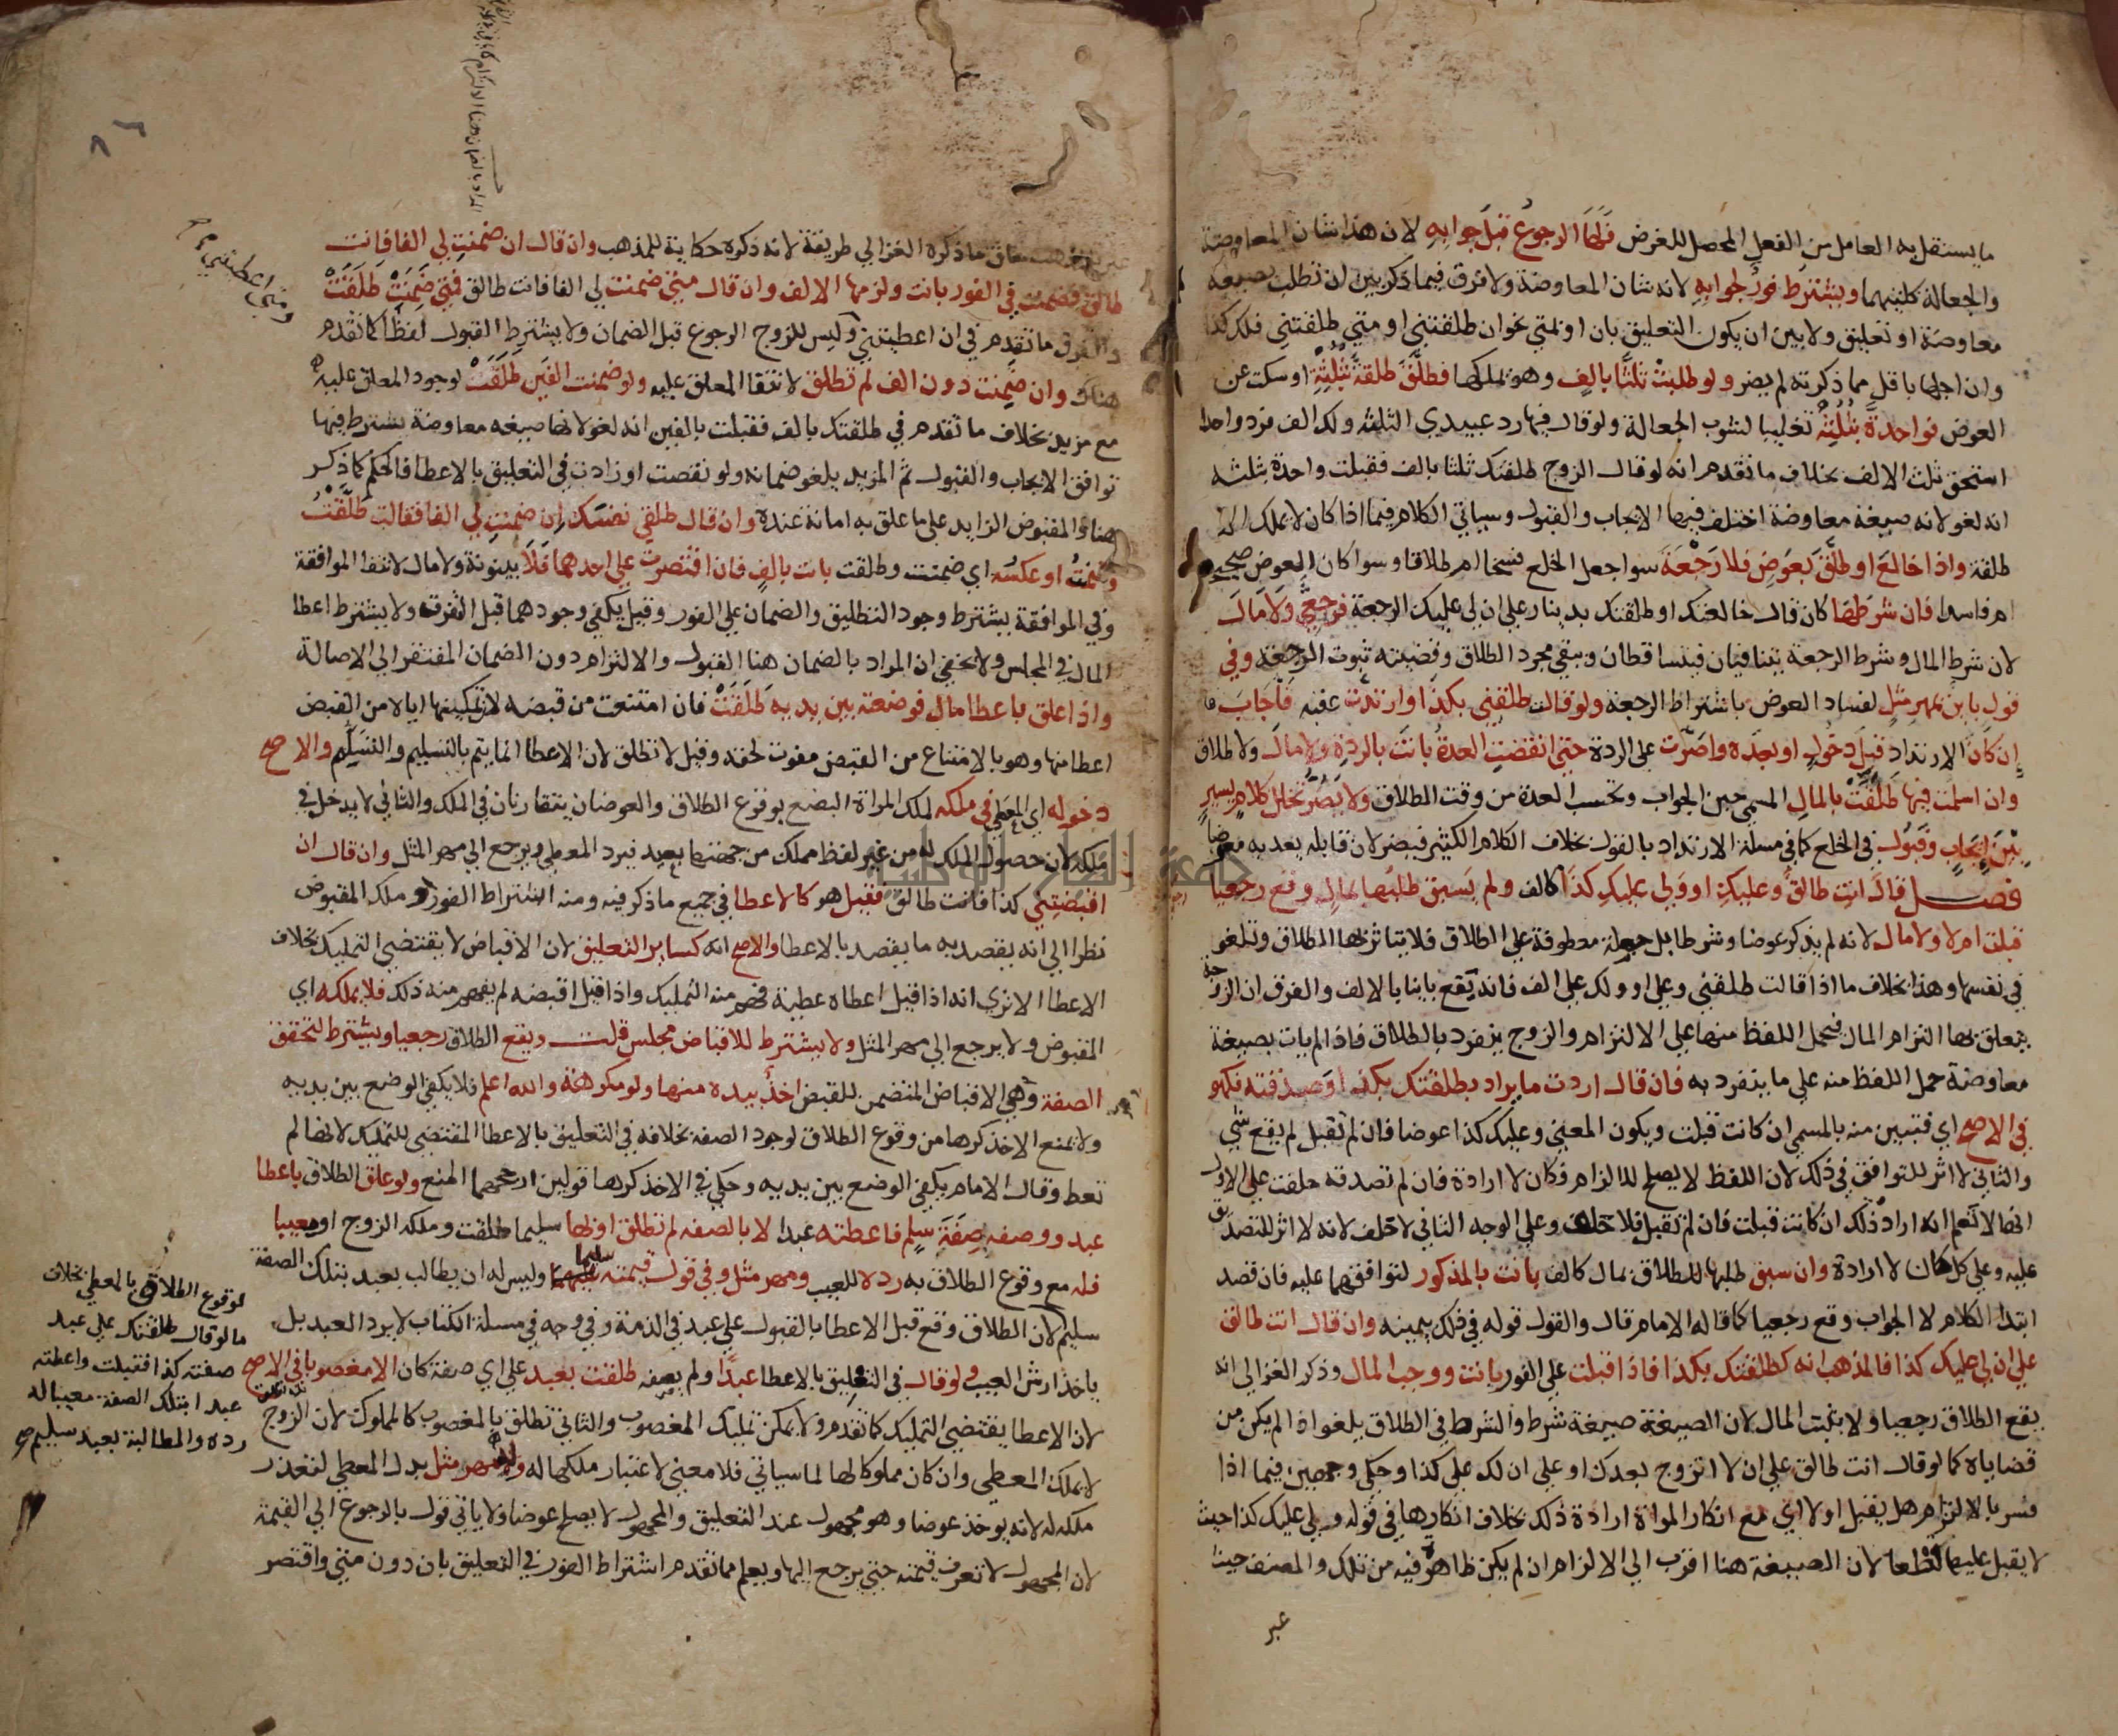 ما يستقل به العامل من الفعل المحصل للغرض فلها الرجوع قبل جوابه لان هذا شان المعاوضة
والجعالة كليهما ويشترط فور لجوابه لانه شان المعاوضة ولا فرق فيما ذكر بين ان تطلب بصيغة
معاوضة او تعليق ولا بين ان يكون التعليق بان او بمتى نحو ان طلقتني او متى طلقتني فلك كذا
وان اجابها باقل مما ذكرته لم يضر ولو طلبت ثلثا بالف وهو يملكها فطلق طلقة بثلثه او سكت عن
العوض فواحدة بثلثه تغليبا لشوب الجعالة ولو قال فيها رد عبيدي الثلثة ولك الف فرد واحدا
استحق ثلث الالف بخلاف ما تقدم انه لو قال الزوج طلقتك ثلثا بالف فقبلت واحدة بثلثه
انه لغو لانه صيغة معاوضة اختلف فيها الايجاب والقبول وسياتي الكلام فيما اذا كان لا يملك الا
طلقة واذا خالع او طلق بعوض فلا رجعة سوا جعل الخلع فسخا ام طلاقا وسوا كان العوض صحيحا
ام فاسدا فان شرطها كان قال خالعتك او طلقتك بدينار على ان لي عليك الرجعة فرجعي ولا مال
لان شرط المال وشرط الرجعة يتنافيان فيتساقطان ويبقى مجرد الطلاق وقضيته ثبوت الرجعة وفي
قول باين بمهر مثل لفساد العوض باشتراط الرجعة ولو قالت طلقني بكذا وارتدت عقبه فاجاب
ان كان الارتداد قبل دخول او بعده واصرت على الردة حتى انقضت العدة بانت بالردة ولا مال ولا طلاق
وان اسلمت فيها طلقت بالمال المسمى حين الجواب وتحسب العدة من وقت الطلاق ولا يضر تخلل كلام يسير
بين ايجاب وقبول في الخلع كما في مسلة الارتداد بالقول بخلاف الكلام الكثير فيضر لان قابله يعد به معرضا
فصل قال انت طالق وعليك او ولي عليك كذا كالف ولم يسبق طلبها بمال وقع رجعيا
قبلت ام لا ولا مال لانه لم يذكر عوضا وشرطا بل جملة معطوفة على الطلاق فلا يتاثر بها الطلاق وتلغو
في نفسها وهذا بخلاف ما اذا قالت طلقني وعلي او ولك علي الف فانه يقع باينا بالالف والفرق ان الزوجة
يتعلق بها التزام المال فيحمل اللفظ منها على الالتزام والزوج ينفرد بالطلاق فاذا لم يات بصيغة
معاوضة حمل اللفظ منه على ما ينفرد به فان قال اردت ما يراد بطلقتك بكذا وصدقته فكهو
في الاصح اي فتبين منه بالمسمى ان كانت قبلت ويكون المعنى وعليك كذا عوضا فان لم تقبل لم يقع شي
والثاني لا اثر للتوافق في ذلك لان اللفظ لا يصلح للالزام فكان لا ارادة فان لم تصدقه حلفت على الاول
انها لا تعلم انه اراد ذلك ان كانت قبلت فان لم تقبل فلا حلف وعلى الوجه الثاني لا تحلف لانه لا اثر للتصديق
عليه وعلى كل كان لا ارادة وان سبق طلبها للطلاق بمال كالف بانت بالمذكور لتوافقهما عليه فان قصد
ابتدا الكلام لا الجواب وقع رجعيا كما قاله الامام قال والقول قوله في ذلك بيمينه وان قال انت طالق
على ان لي عليك كذا فالمذهب انه كطلقتك بكذا فاذا قبلت على الفور بانت ووجب المال وذكر الغزالي انه
يقع الطلاق رجعيا ولا يثبت المال لان الصيغة صيغة شرط والشرط في الطلاق يلغو اذا لم يكن من
قضاياه كما لو قال انت طالق على ان لا اتزوج بعدك او على ان لك علي كذا وحكى وجهين فيما اذا
فسر بالالتزام هل يقبل او لا اي مع انكار المراة ارادة ذلك بخلاف انكارها في قوله ولي عليك كذا حيث
لا يقبل عليها قطعا لان الصيغة هنا اقرب الى الالزام ان لم يكن ظاهرة فيه من تلك والمصنف حيث
عبر
المذهب ما ذكره الغزالي طريقة لانه ذكره حكاية للمذهب وان قال ان ضمنت لي الفا فانت
طالق فضمنت في الفور بانت ولزمها الالف وان قال متى ضمنت لي الفا فانت طالق فمتى ضمنت طلقت
والفرق ما تقدم في ان اعطيتني وليس للزوج الرجوع قبل الضمان ولا يشترط القبول لفظا كما تقدم
هناك وان ضمنت دون الف لم تطلق لانتفا المعلق عليه ولو ضمنت الفين طلقت لوجود المعلق عليه
مع مزيد بخلاف ما تقدم في طلقتك بالف فقبلت بالفين انه لغو لانها صيغه معاوضة يشترط فيها
توافق الايجاب والقبول ثم المزيد يلغو ضمانه ولو نقصت او زادت في التعليق بالاعطا فالحكم كما ذكر
هنا والمقبوض الزايد على ما علق به امانة عنده وان قال طلقي نفسك ان ضمنت لي الفا فقالت طلقت
وضمنت او عكسه اي ضمنت وطلقت بانت بالف فان اقتصرت على احدهما فلا بينونة ولا مال لانتفا الموافقة
وفي الموافقة يشترط وجود التطليق والضمان على الفور وقيل يكفي وجودهما قبل التفرق ولا يشترط اعطا
المال في المجلس ولا يخفى ان المراد بالضمان هنا القبول والالتزام دون الضمان المفتقر الى الاصالة
واذا علق باعطا مال فوضعته بين يديه طلقت فان امتنعت من قبضه لان تمكينها اياه من القبض
اعطا منها وهو بالامتناع من القبض مفوت لحقه وقيل لا تطلق لان الاعطا انما يتم بالتسليم والتسلم والاصح
دخوله اي المعطى في ملكه لملك المراة البضع بوقوع الطلاق والعوضان يتقارنان في الملك والثاني لا يدخل في
ملكه لان حصول الملك له من غير لفظ مملك من جهتها بعيد فيرد المعطى ويرجع الى مهر المثل وان قال ان
اقبضتني كذا فانت طالق فقيل هو كالاعطا في جميع ما ذكر فيه ومنه اشتراط الفور وملك المقبوض
نظرا الى انه يقصد به ما يقصد بالاعطا والاصح انه كساير التعليق لان الاقباض لا يقتضي التمليك بخلاف
الاعطا الا ترى انه اذا قيل اعطاه عطية فهم منه التمليك واذا قيل اقبضه لم يفهم منه ذلك فلا يملكه اي
المقبوض ولا يرجع الى مهر المثل ولا يشترط للاقباض مجلس قلت ويقع الطلاق رجعيا ويشترط لتحقق
الصفة وهي الاقباض المتضمن للقبض اخذ بيده منها ولو مكرهة والله اعلم فلا يكفي الوضع بين يديه
ولا يمنع الاخذ كرها من وقوع الطلاق لوجود الصفة بخلافه في التعليق بالاعطا المقتضي للتمليك لانها لم
تعط وقال الامام يكفي الوضع بين يديه وحكى في الاخذ كرها قولين ارجحهما المنع ولو علق الطلاق باعطا
عبد ووصفه صفة سلم فاعطته عبدا لا بالصفه لم تطلق او بها سليما طلقت وملكه الزوج او معيبا
فله مع وقوع الطلاق به رده للعيب ومهر مثل وفي قول قيمته سليما وليس له ان يطالب بعبد بتلك الصفة
سليم لان الطلاق وقع قبل الاعطا بالقبول على عبد في الذمة وفي وجه في مسلة الكتاب لا يرد العبد بل
ياخذ ارش العيب ولو قال في التعليق بالاعطا عبدا ولم يصفه طلقت بعبد على اي صفة كان الا مغصوبا في الاصح
لان الاعطا يقتضي التمليك كما تقدم ولا يمكن تمليك المغصوب والثاني تطلق بالمغصوب كالمملوك لان الزوج
لا يملك المعطى وان كان مملوكا لها لما سياتي فلا معنى لاعتبار ملكها له وله مهر مثل بدل المعطى لتعذر
ملكه له لانه يوخذ عوضا وهو مجهول عند التعليق والمجهول لا يصلح عوضا ولا ياتي قول بالرجوع الى القيمة
لان المجهول لا تعرف قيمته حتى يرجع اليها ويعلم مما تقدم اشتراط الفور في التعليق بان دون متى واقتصر
ومتى اعطيتني
لوقوع الطلاق بالمعطى بخلاف
ما لو قال طلقتك على عبد
صفته كذا فقبلت واعطته
عبدا بتلك الصفة معيبا له
رده والمطالبة بعبد سليم صح
٨٦